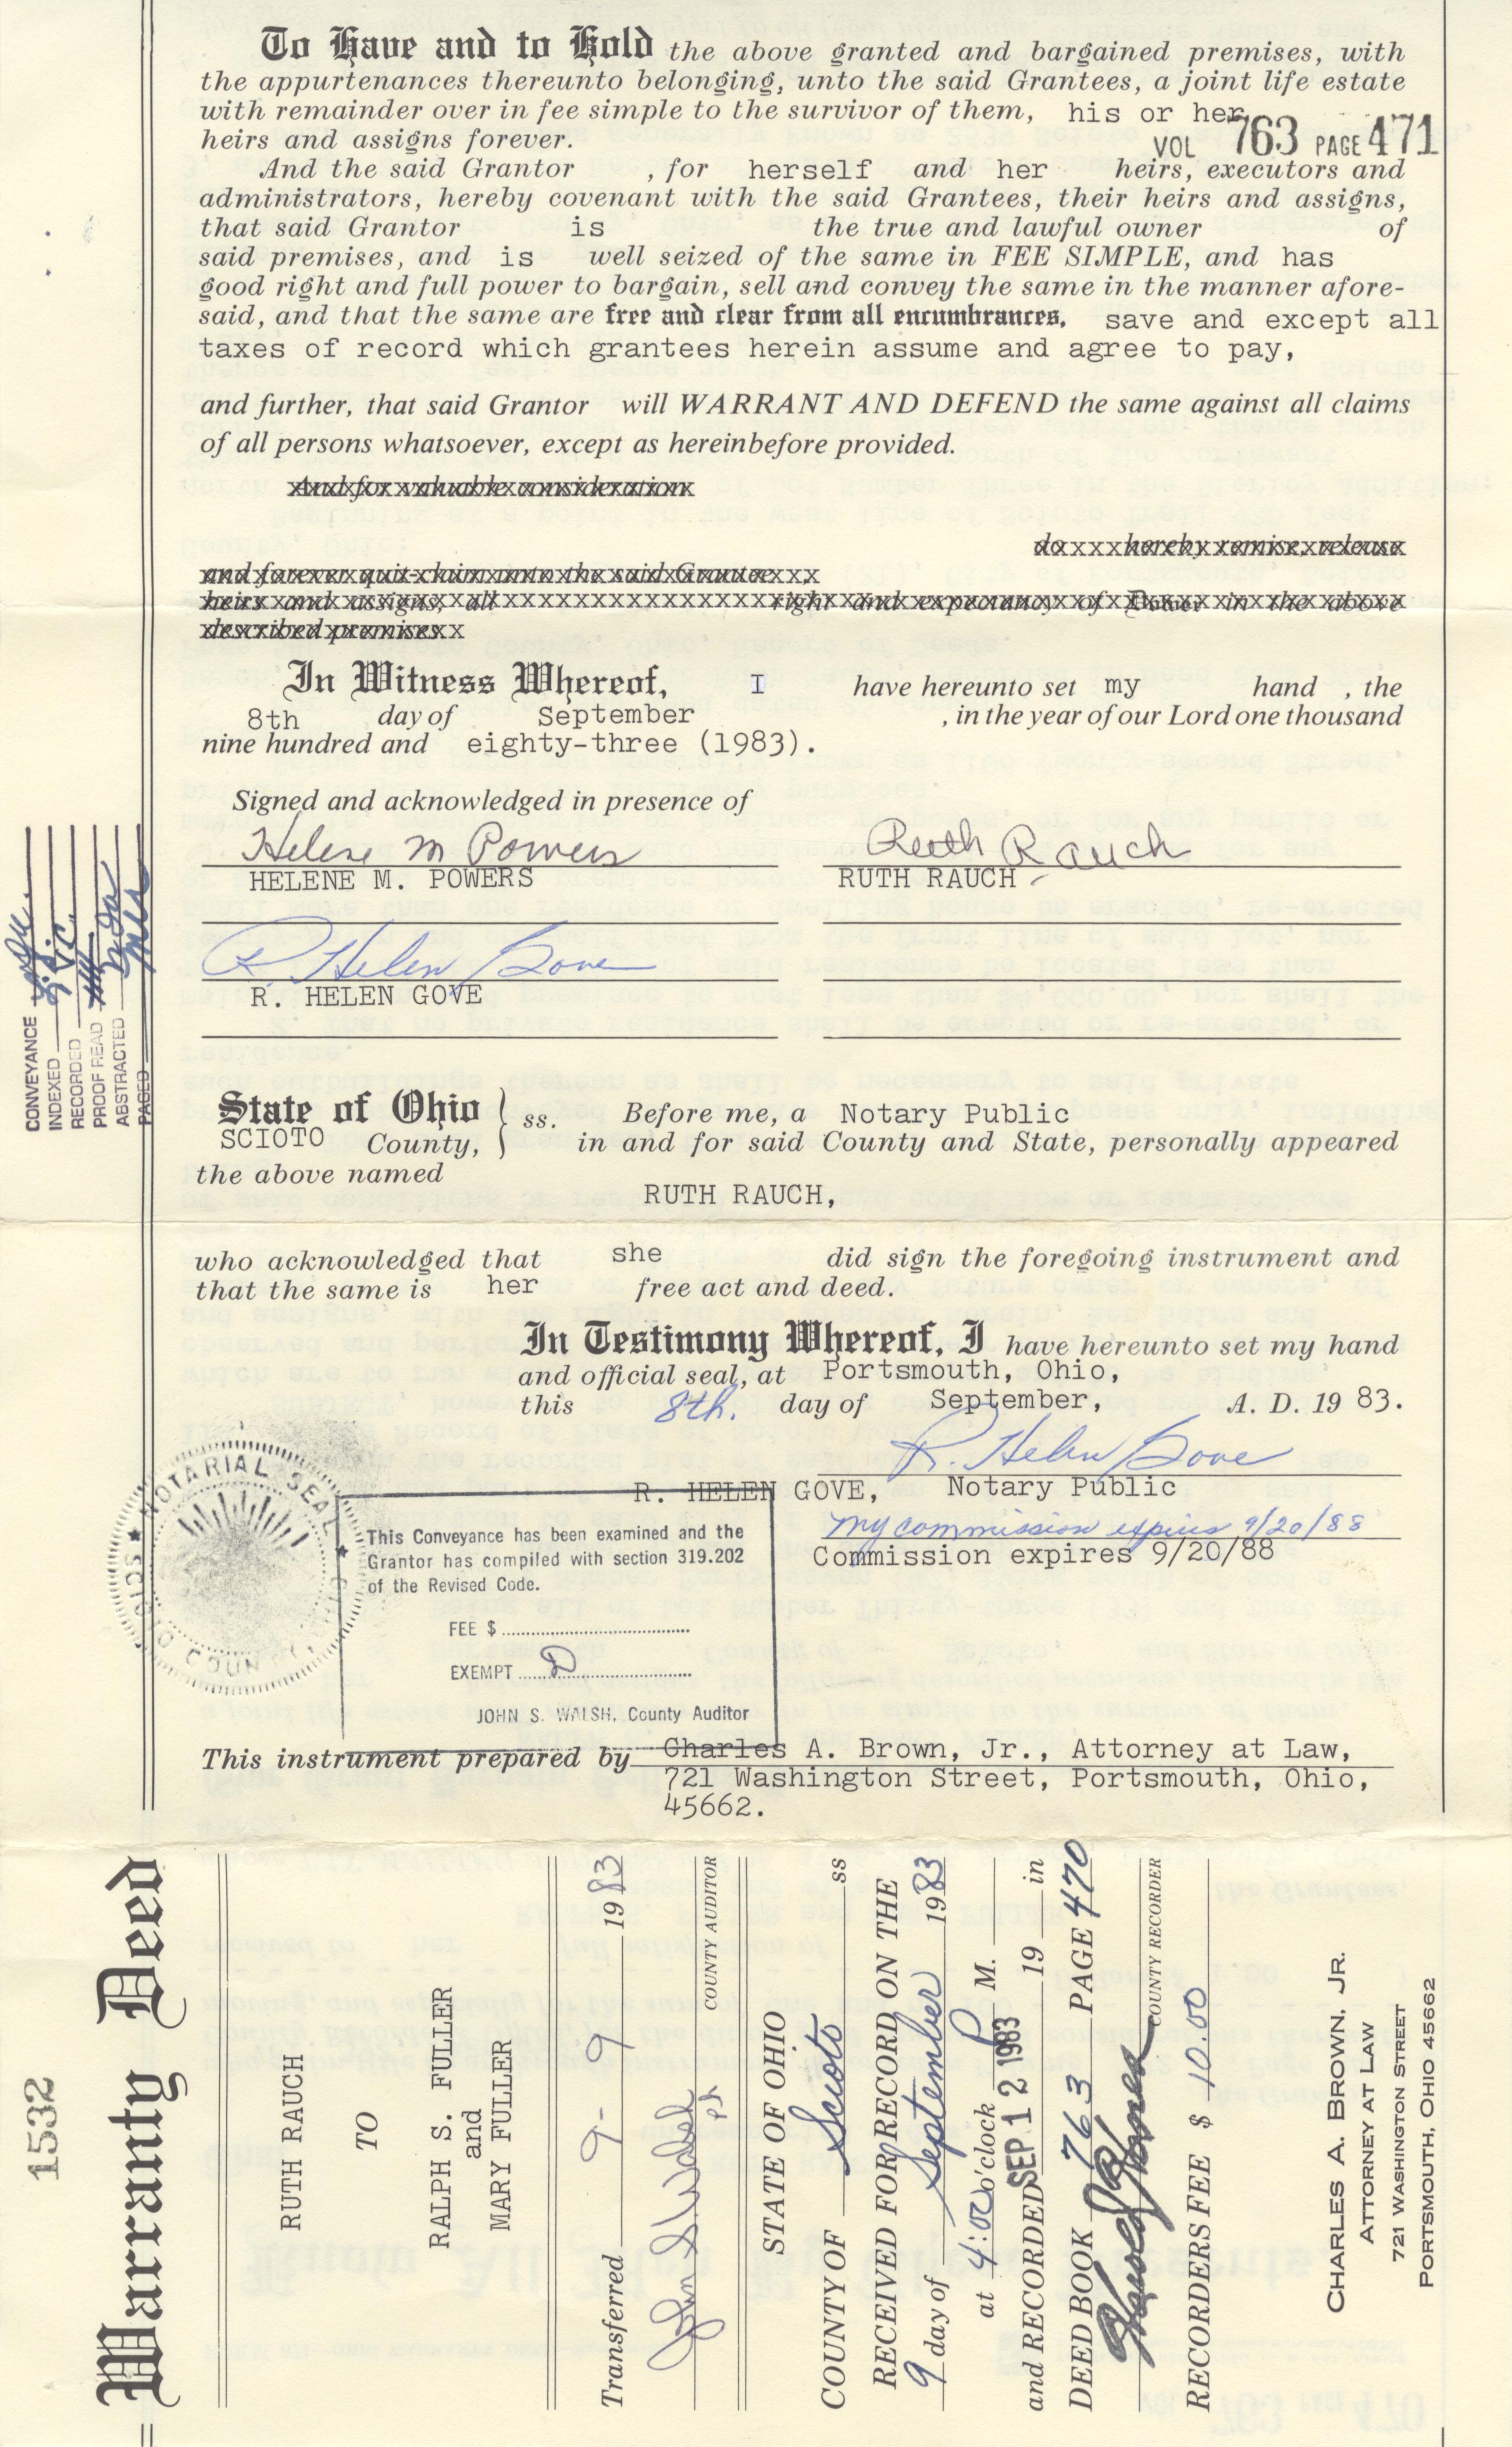 To Have and to Hold the above granted and bargained premises, with
the appurtenances thereunto belonging, unto the said Grantees, a joint life estate
with remainder over in fee simple to the survivor of them, his or her
heirs and assigns forever.
VOL 763 PAGE 471
And the said Grantor , for herself and her heirs, executors and
administrators, hereby covenant with the said Grantees, their heirs and assigns,
that said Grantor is the true and lawful owner of
said premises, and is well seized of the same in FEE SIMPLE, and has
good right and full power to bargain, sell and convey the same in the manner afore-
said, and that the same are free and clear from all encumbrances, save and except all
taxes of record which grantees herein assume and agree to pay,
and further, that said Grantor will WARRANT AND DEFEND the same against all claims
of all persons whatsoever, except as hereinbefore provided.
And for valuable consideration
do hereby remise, release
and forever quit-claim unto the said Grantee ,
heirs and assigns, all right and expectancy of Dower in the above
described premises
In Witness Whereof, I have hereunto set my hand , the
8th day of September , in the year of our Lord one thousand
nine hundred and eighty-three (1983).
Signed and acknowledged in presence of
Helene M Powers Ruth Rauch
HELENE M. POWERS RUTH RAUCH
R. Helen Gove
R. HELEN GOVE
CONVEYANCE
INDEXED
RECORDED
PROOF READ
ABSTRACTED
PAGED
State of Ohio } ss. Before me, a Notary Public
SCIOTO County, in and for said County and State, personally appeared
the above named
RUTH RAUCH,
who acknowledged that she did sign the foregoing instrument and
that the same is her free act and deed.
In Testimony Whereof, I have hereunto set my hand
and official seal, at Portsmouth, Ohio,
this 8th. day of September, A. D. 19 83.
R. Helen Gove
R. HELEN GOVE, Notary Public
My commission expires 9/20/88
Commission expires 9/20/88
NOTARIAL SEAL
SCIOTO COUNTY,
This Conveyance has been examined and the
Grantor has compiled with section 319.202
of the Revised Code.
FEE $
EXEMPT D
JOHN S. WALSH, County Auditor
This instrument prepared by Charles A. Brown, Jr., Attorney at Law,
721 Washington Street, Portsmouth, Ohio,
45662.
1532
Warranty Deed
RUTH RAUCH
TO
RALPH S. FULLER
and
MARY FULLER
Transferred 9-9 1983
John S. Walsh
COUNTY AUDITOR
STATE OF OHIO
COUNTY OF Scioto ss
RECEIVED FOR RECORD ON THE
9 day of September 1983
at 4:00 o'clock P M.
and RECORDED SEP 12 1983 19 in
DEED BOOK 763 PAGE 470
COUNTY RECORDER
RECORDERS FEE $ 10.00
CHARLES A. BROWN, JR.
ATTORNEY AT LAW
721 WASHINGTON STREET
PORTSMOUTH, OHIO 45662